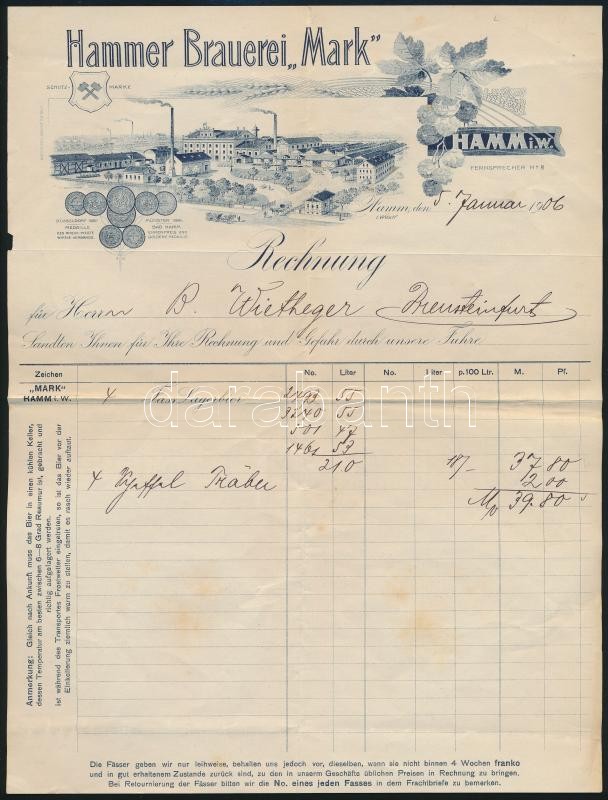 Hammer Brauerei „Mark"
SCHUTZ- MARKE
HAMM i.W.
FERNSPRECHER Nº 8
DÜSSELDORF 1880
MEDAILLE
MÜNSTER 1881.
BAD HAMM.
EHRENPREIS UND
GOLDENE MEDAILLE.
Hamm, den 5. Januar 1906
i/Westf.
Rechnung
für Herrn B. Wietheger Drensteinfurt
Sandten Ihnen für Ihre Rechnung und Gefahr durch unsere Fuhre
Zeichen No. Liter No. Liter p.100 Ltr. M. Pf.
„MARK"
HAMM i. W.
4 Fass Lagerbier 2493 55
3240 55
501 47
1461 53
210 18/- 37 80
4 Scheffel Träber 2 00
M 39.80
Anmerkung: Gleich nach Ankunft muss das Bier in einen kühlen Keller,
dessen Temperatur am besten zwischen 6–8 Grad Reaumur ist, gebracht und
richtig aufgelagert werden.
ist während des Transportes Frostwetter eingetreten, so ist das Bier vor der
Einkellerung ziemlich warm zu stellen, damit es rasch wieder auftaut.
Die Fässer geben wir nur leihweise, behalten uns jedoch vor, dieselben, wann sie nicht binnen 4 Wochen franko
und in gut erhaltenem Zustande zurück sind, zu den in unserem Geschäfte üblichen Preisen in Rechnung zu bringen.
Bei Retournierung der Fässer bitten wir die No. eines jeden Fasses in dem Frachtbriefe zu bemerken.
darabanth